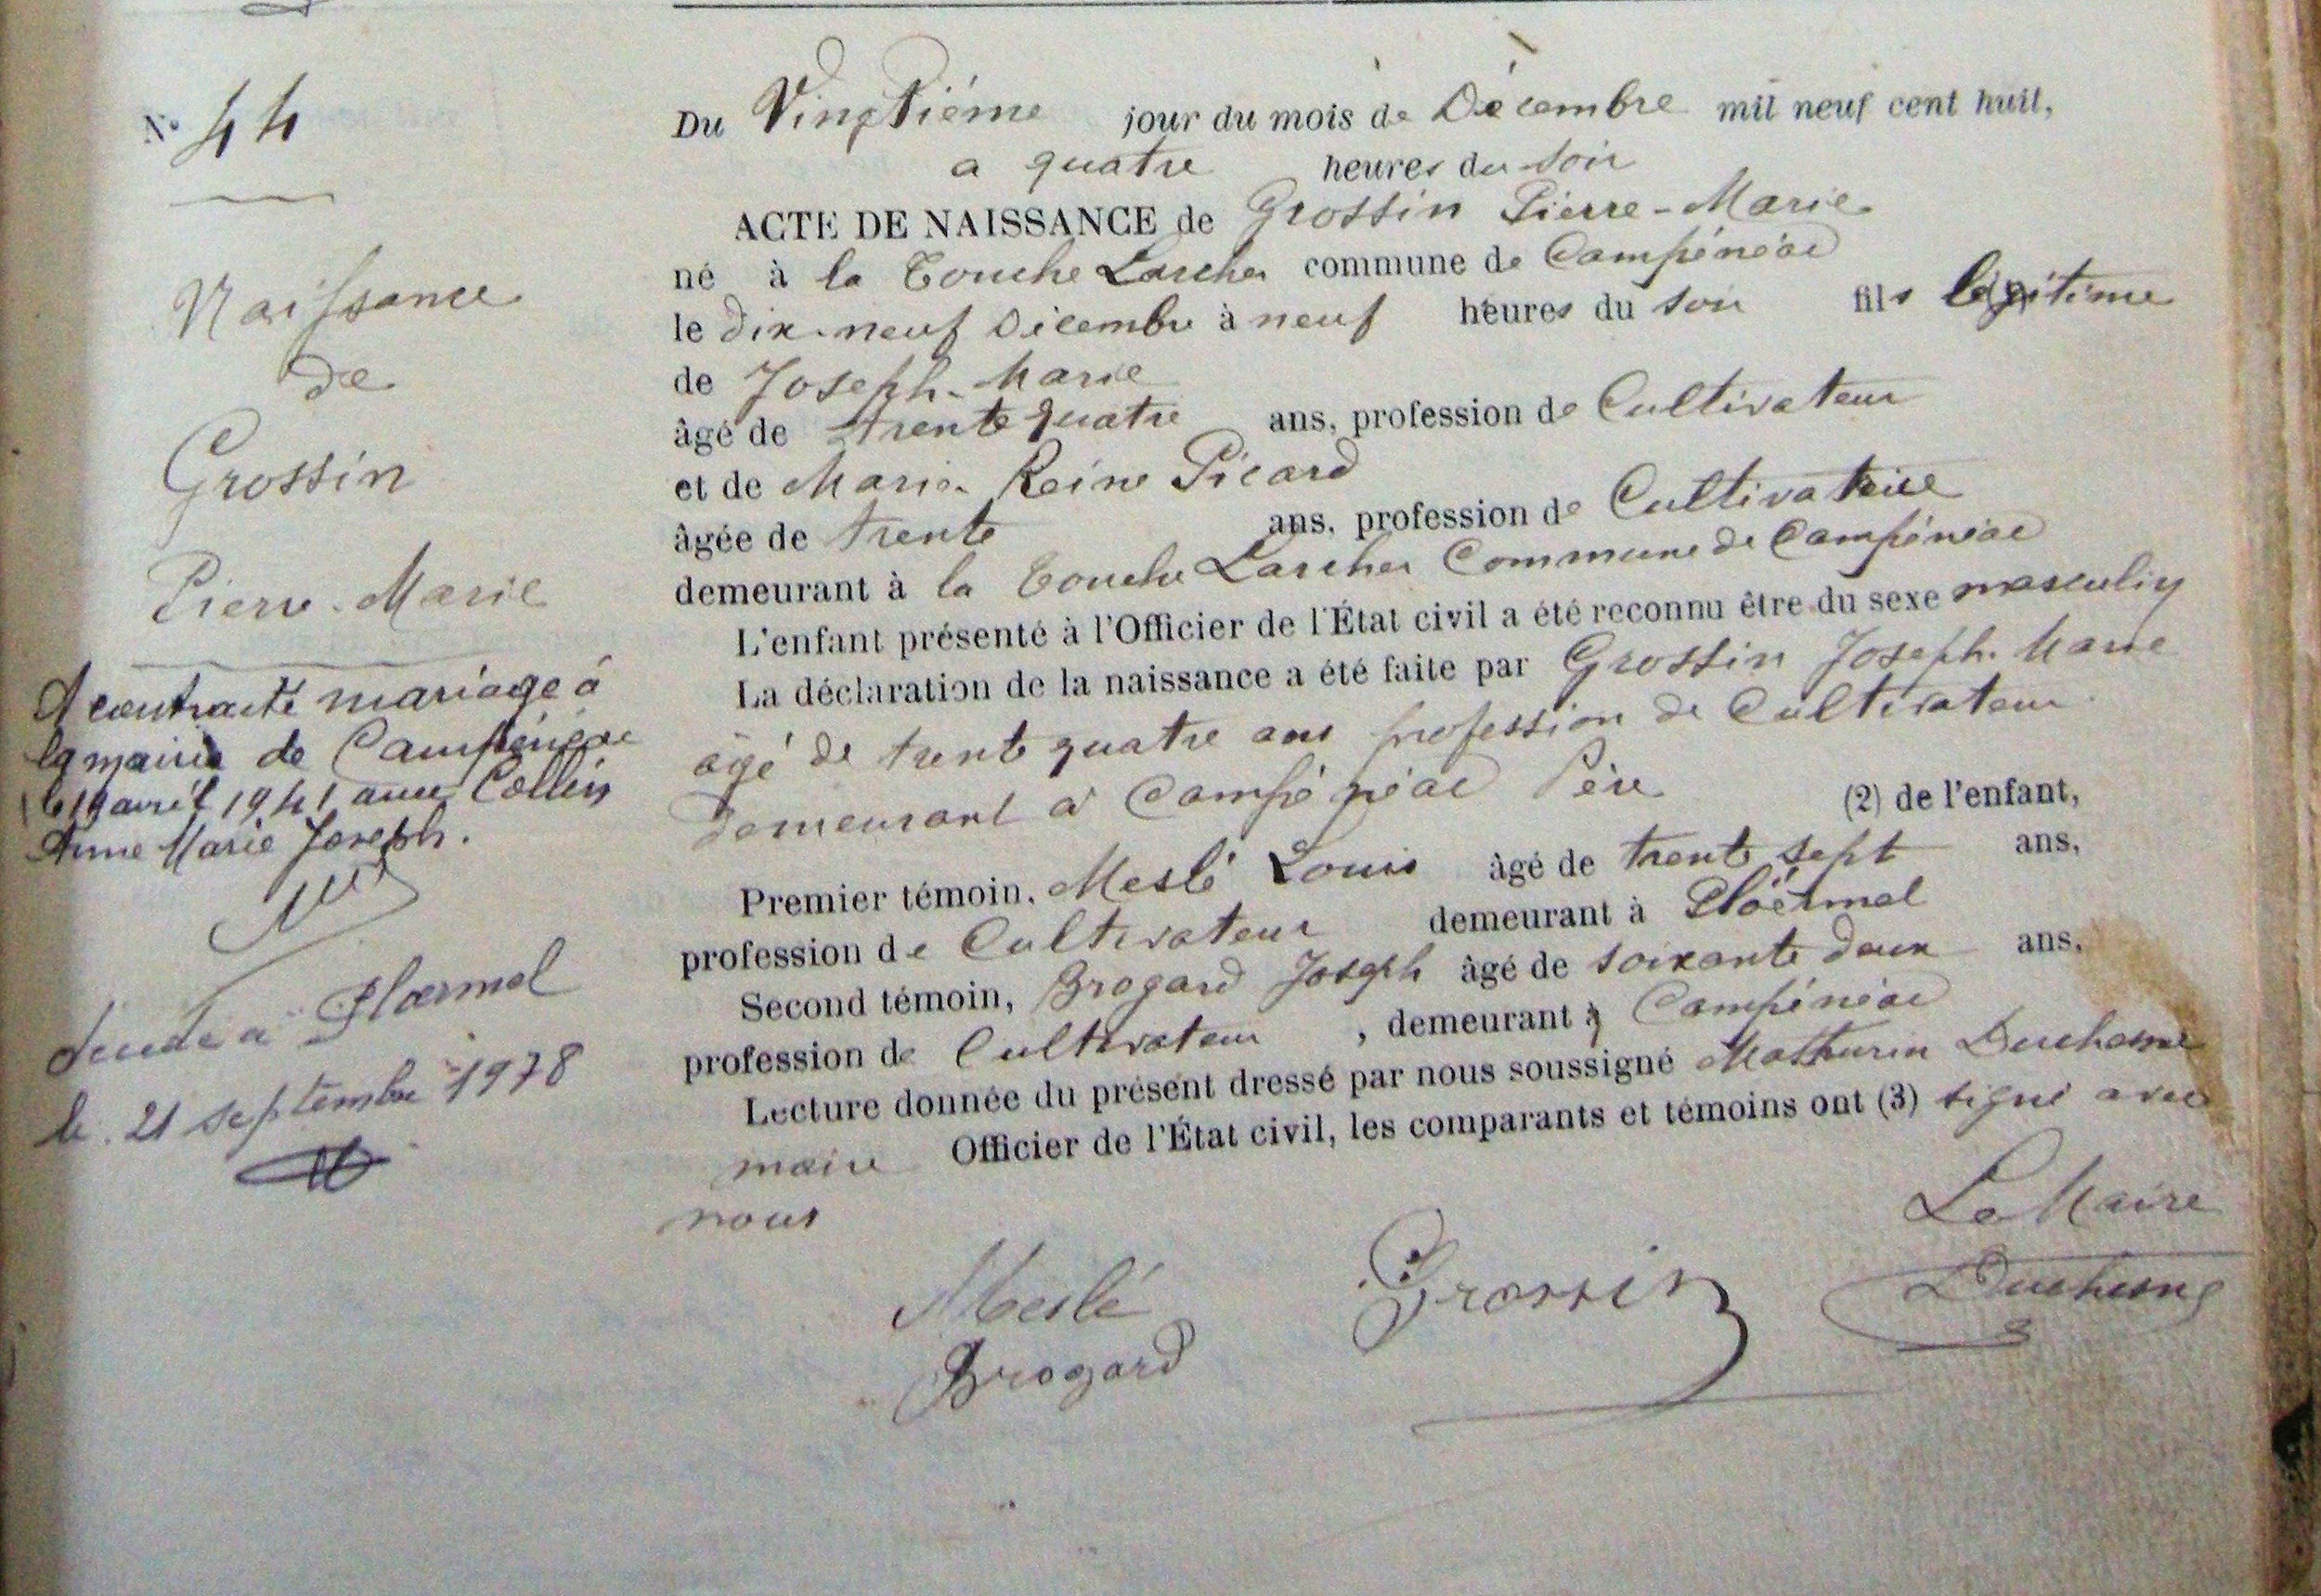 N° 44
Naissance
de
Grossin
Pierre-Marie
A contracté mariage à
la mairie de Campénéac
le 19 avril 1941 avec Collin
Anne Marie Joseph.
décédé à Ploermel
le 21 septembre 1978
Du Vingtième jour du mois de Décembre mil neuf cent huit,
a quatre heures du soir
ACTE DE NAISSANCE de Grossin Pierre-Marie
né à la Touche Larcher commune de Campénéac
le dix-neuf Décembre à neuf heures du soir fils légitime
de Joseph-Marie
âgé de trente quatre ans, profession de Cultivateur
et de Marie Reine Picard
âgée de trente ans, profession de Cultivatrice
demeurant à la Touche Larcher Commune de Campénéac
L'enfant présenté à l'Officier de l'État civil a été reconnu être du sexe masculin
La déclaration de la naissance a été faite par Grossin Joseph-Marie
âgé de trente quatre ans profession de Cultivateur
demeurant à Campénéac Père (2) de l'enfant,
Premier témoin, Meslé Louis âgé de trente sept ans,
profession de Cultivateur demeurant à Ploërmel
Second témoin, Brogard Joseph âgé de soixante deux ans,
profession de Cultivateur, demeurant à Campénéac
Lecture donnée du présent dressé par nous soussigné Mathurin Duchesne
maire Officier de l'État civil, les comparants et témoins ont (3) signé avec
nous
Le Maire
Meslé Grossin Duchesne
Brogard